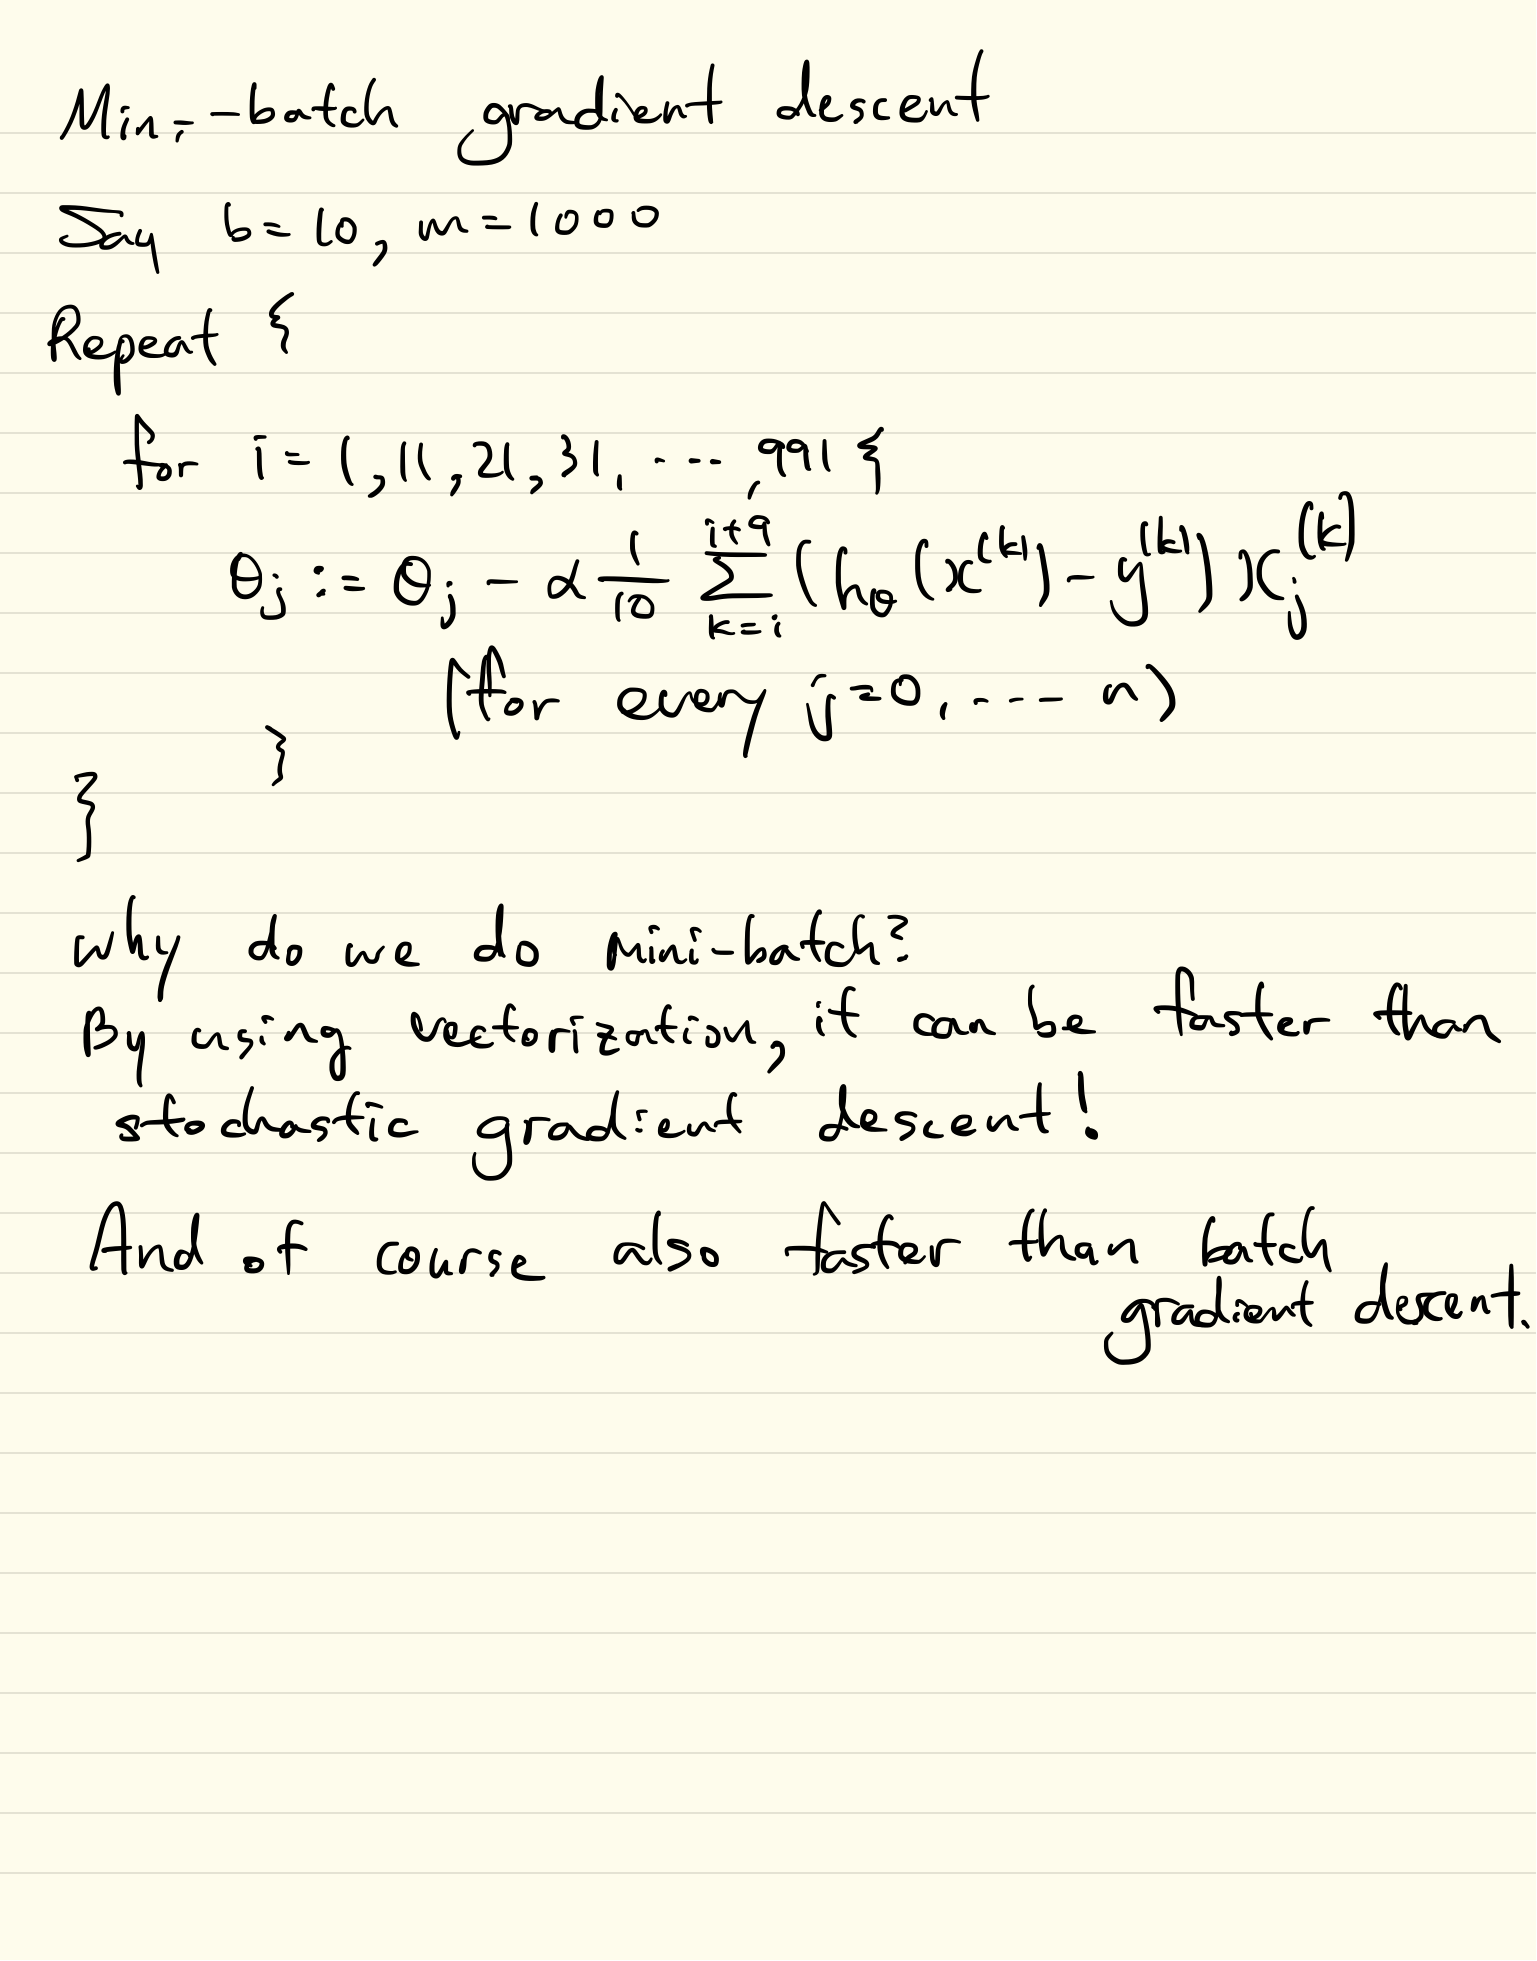 Mini-batch gradient descent
Say b=10, m=1000
Repeat {
for i = 1, 11, 21, 31, ..., 991 {
θ_j := θ_j - α 1/10 Σ_{k=i}^{i+9} (h_θ(x^(k)) - y^(k)) x_j^(k)
(for every j=0, ... n)
}
}
why do we do mini-batch?
By using vectorization, it can be faster than
stochastic gradient descent!
And of course also faster than batch
gradient descent.